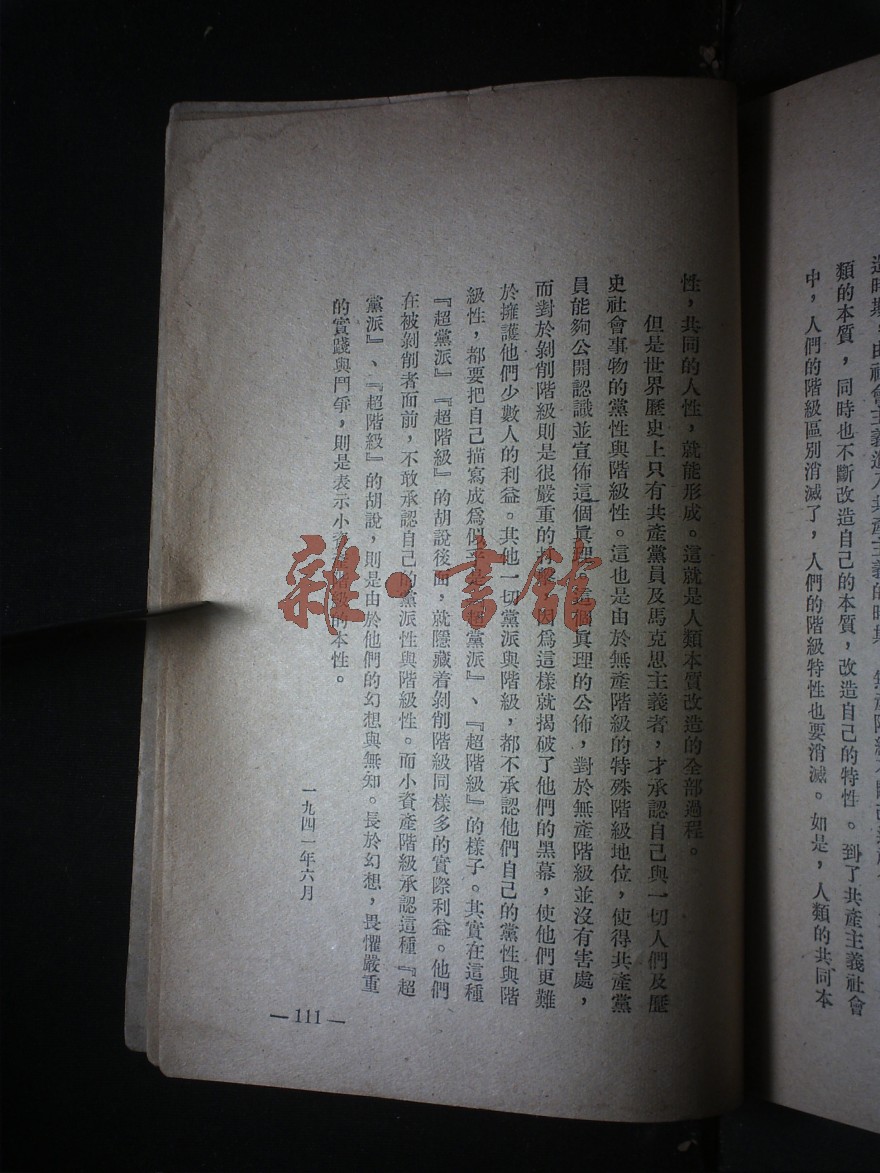 類的本質，同時也不斷改造自己的本質，改造自己的特性。到了共產主義社會
中，人們的階級區別消滅了，人們的階級特性也要消滅。如是，人類的共同本
性，共同的人性，就能形成。這就是人類本質改造的全部過程。
但是世界歷史上只有共產黨員及馬克思主義者，才承認自己與一切人們及歷
史社會事物的黨性與階級性。這也是由於無產階級的特殊階級地位，使得共產黨
員能夠公開認識並宣佈這個眞理。這個眞理的公佈，對於無產階級並沒有害處，
而對於剝削階級則是很嚴重的打擊，因爲這樣就揭破了他們的黑幕，使他們更難
於擁護他們少數人的利益。其他一切黨派與階級，都不承認他們自己的黨性與階
級性，都要把自己描寫成爲似乎是『超黨派』、『超階級』的樣子。其實在這種
『超黨派』『超階級』的胡說後面，就隱藏着剝削階級同樣多的實際利益。他們
在被剝削者面前，不敢承認自己的黨派性與階級性。而小資產階級承認這種『超
黨派』、『超階級』的胡說，則是由於他們的幻想與無知。長於幻想，畏懼嚴重
的實踐與鬥爭，則是表示小資產階級的本性。
一九四一年六月
—111—
雜·書館